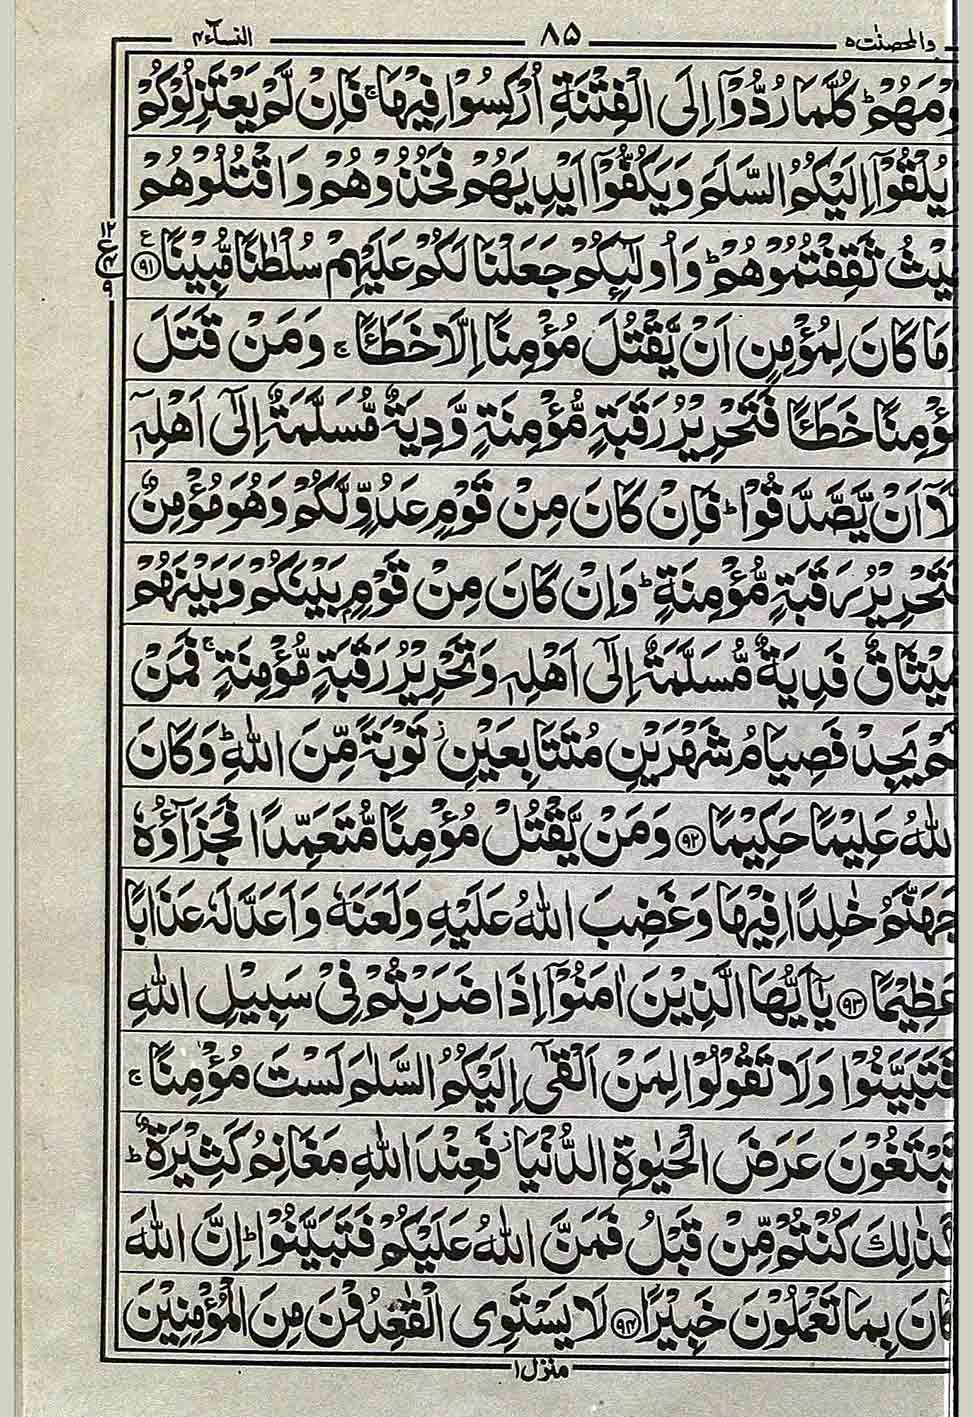 والمحصنٰت ۵ ۸۵ النسآء ۴
كُلَّمَا رُدُّوْۤا اِلَى الْفِتْنَةِ اُرْكِسُوْا فِيْهَا ۚ فَاِنْ لَّمْ يَعْتَزِلُوْكُمْ
اِلَيْكُمُ السَّلَمَ وَيَكُفُّوْۤا اَيْدِيَهُمْ فَخُذُوْهُمْ وَاقْتُلُوْهُمْ
ثَقِفْتُمُوْهُمْ ؕ وَاُولٰٓئِكُمْ جَعَلْنَا لَكُمْ عَلَيْهِمْ سُلْطٰنًا مُّبِيْنًا ﴿۹۱﴾ ع
۱۲ ع ۹
مَا كَانَ لِمُؤْمِنٍ اَنْ يَّقْتُلَ مُؤْمِنًا اِلَّا خَطَـًٔا ۚ وَمَنْ قَتَلَ
خَطَـًٔا فَتَحْرِيْرُ رَقَبَةٍ مُّؤْمِنَةٍ وَّدِيَةٌ مُّسَلَّمَةٌ اِلٰٓى اَهْلِهٖۤ
اَنْ يَّصَّدَّقُوْا ؕ فَاِنْ كَانَ مِنْ قَوْمٍ عَدُوٍّ لَّكُمْ وَهُوَ مُؤْمِنٌ
رَقَبَةٍ مُّؤْمِنَةٍ ؕ وَاِنْ كَانَ مِنْ قَوْمٍۭ بَيْنَكُمْ وَبَيْنَهُمْ
مِّيْثَاقٌ فَدِيَةٌ مُّسَلَّمَةٌ اِلٰٓى اَهْلِهٖ وَتَحْرِيْرُ رَقَبَةٍ مُّؤْمِنَةٍ ۚ فَمَنْ
لَّمْ يَجِدْ فَصِيَامُ شَهْرَيْنِ مُتَتَابِعَيْنِ ؗ تَوْبَةً مِّنَ اللّٰهِ ؕ وَكَانَ
اللّٰهُ عَلِيْمًا حَكِيْمًا ﴿۹۲﴾ وَمَنْ يَّقْتُلْ مُؤْمِنًا مُّتَعَمِّدًا فَجَزَآؤُهٗ
جَهَنَّمُ خٰلِدًا فِيْهَا وَغَضِبَ اللّٰهُ عَلَيْهِ وَلَعَنَهٗ وَاَعَدَّ لَهٗ عَذَابًا
عَظِيْمًا ﴿۹۳﴾ يٰۤاَيُّهَا الَّذِيْنَ اٰمَنُوْۤا اِذَا ضَرَبْتُمْ فِيْ سَبِيْلِ اللّٰهِ
فَتَبَيَّنُوْا وَلَا تَقُوْلُوْا لِمَنْ اَلْقٰۤى اِلَيْكُمُ السَّلٰمَ لَسْتَ مُؤْمِنًا ۚ
تَبْتَغُوْنَ عَرَضَ الْحَيٰوةِ الدُّنْيَا ؗ فَعِنْدَ اللّٰهِ مَغَانِمُ كَثِيْرَةٌ ؕ
كَذٰلِكَ كُنْتُمْ مِّنْ قَبْلُ فَمَنَّ اللّٰهُ عَلَيْكُمْ فَتَبَيَّنُوْا ؕ اِنَّ اللّٰهَ
كَانَ بِمَا تَعْمَلُوْنَ خَبِيْرًا ﴿۹۴﴾ لَا يَسْتَوِى الْقٰعِدُوْنَ مِنَ الْمُؤْمِنِيْنَ
منزل ۱